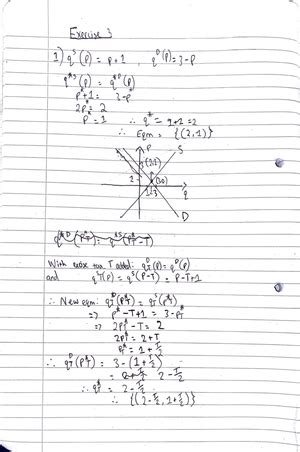 Exercise 3
1) qˢ(p) = p+1 , qᴰ(p) = 3-p
q*ˢ(p) = q*ᴰ(p)
p*+1 = 3-p*
2p* = 2
p* = 1 ∴ q* = 1+1=2
∴ Eqm = {(2,1)}
P
S
(2,1)
1
(3,0)
1 2 3
q
D
With excise tax T added: qᴰ_T(p) = qᴰ(p)
and qˢ_T(p) = qˢ(p-T) = p-T+1
∴ New eqm: qᴰ_T(p*_T) = qˢ_T(p*_T)
=> p*-T+1 = 3-p*_T
=> 2p*_T-T = 2
2p*_T = 2+T
p*_T = 1+T/2
∴ qᴰ_T(p*_T) = 3-(1+T/2)
= 2-T/2
∴ q*_T = 2-T/2
∴ {(2-T/2, 1+T/2)}